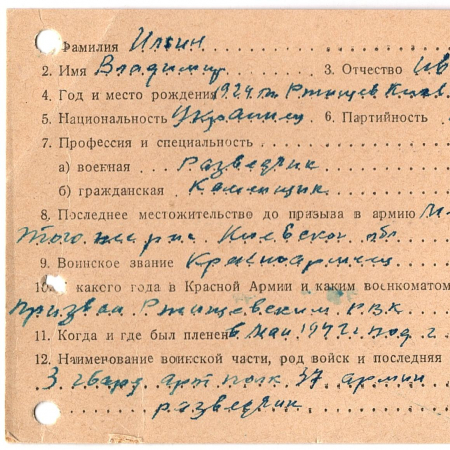 Фамилия Ильин
2. Имя Владимир 3. Отчество Ив
4. Год и место рождения 1924 г. Ртищев Киев.
5. Национальность Украинец 6. Партийность
7. Профессия и специальность
а) военная разведчик
б) гражданская Каменщик
8. Последнее местожительство до призыва в армию
Того же рна Киевской обл
9. Воинское звание Красноармеец
10. какого года в Красной Армии и каким военкоматом
призван Ртищевским РВК
11. Когда и где был пленен 6 мая под г.
12. Наименование воинской части, род войск и последняя
3 гвард арт полк 37 армии
разведчик